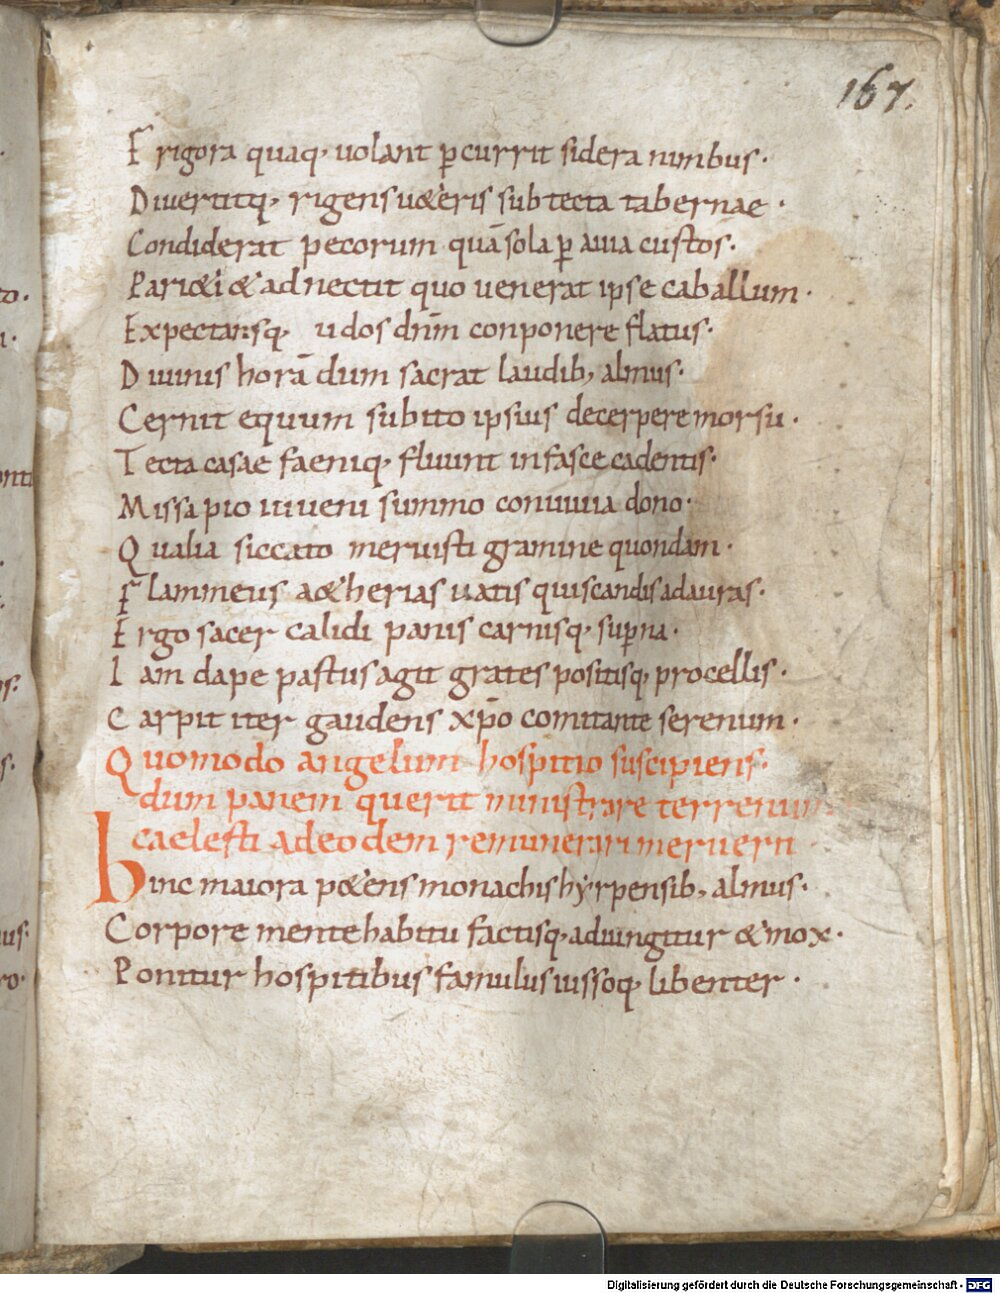 167.
Frigora quaq, uolant ꝑcurrit sidera nimbus.
Diuertitq, rigens u&eris sub tecta tabernae.
Condiderat pecorum quā sola ꝑ auia custos.
Pari&i & adnectit quo uenerat ipse caballum.
Expectansq, udos dnm̄ conponere flatus.
Diuinis horā dum sacrat laudib, almus.
Cernit equum subito ipsius decerpere morsu.
Tecta casae faeniq, fluunt in fasce cadentis.
Missa pio iuueni summo conuiuia dono.
Qualia siccato meruisti gramine quondam.
Flammeus a&herias uatis qui scandis ad auras.
Ergo sacer calidi panis carnisq, suꝑna.
Iam dape pastus agit grates positisq, procellis.
Carpit iter gaudens xp̄o comitante serenum.
Quomodo angelum hospitio suscipiens.
dum panem querit ministrare terrenum.
caelesti ab eodem remunerari meruerit
hinc maiora p&ens monachis hyrpensib, almus.
Corpore mente habitu factisq, adiungitur & mox.
Ponitur hospitibus famulus iussoq, libenter.
Digitalisierung gefördert durch die Deutsche Forschungsgemeinschaft - DFG